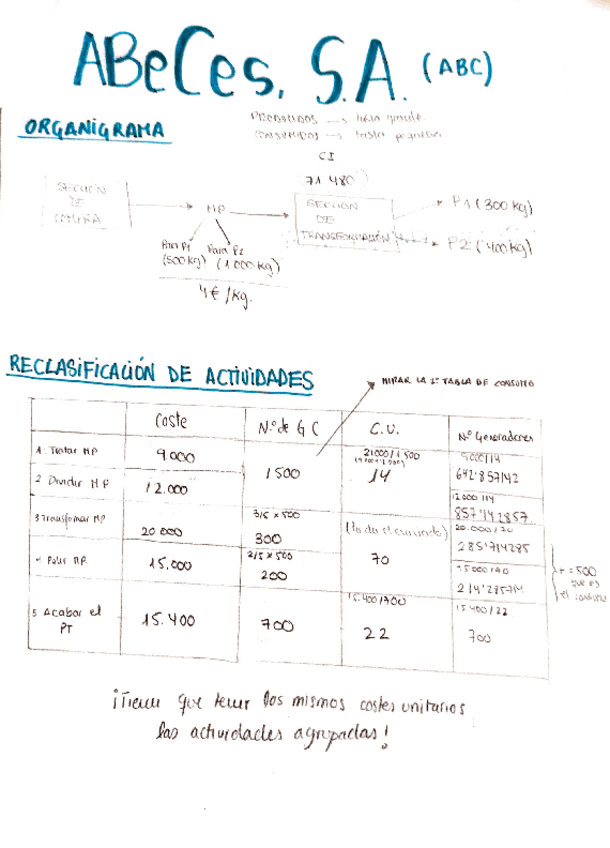 ABeCes, S.A. (ABC)
ORGANIGRAMA
PRODUCIDOS → tabla grande
CONSUMIDOS → tabla pequeña
CI
71 480
SECCIÓN DE COMPRA
MP
SECCIÓN DE TRANSFORMACIÓN
P1 (300 kg)
P2 (400 kg)
Para P1 (500 kg)
Para P2 (1000 kg)
4€/kg.
RECLASIFICACIÓN DE ACTIVIDADES
MIRAR LA 1ª TABLA DE CONSUMO
Coste
N.º de G C
C.U.
Nº Generadores
1. Tratar MP
9.000
1500
21000/1.500
14
9000/14
642'857142
2 Dividir MP
12.000
12000/14
857'142857
3 Transformar MP
20 000
3/5 x 500
300
70
20.000/70
285'714285
4 Pulir MP.
15.000
2/5 x 500
200
15000/70
+ = 500
que es
el consumo
5 Acabar el PT
15.400
700
15.400/700
22
15.400/22
700
¡Tienen que tener los mismos costes unitarios
las actividades agrupadas!